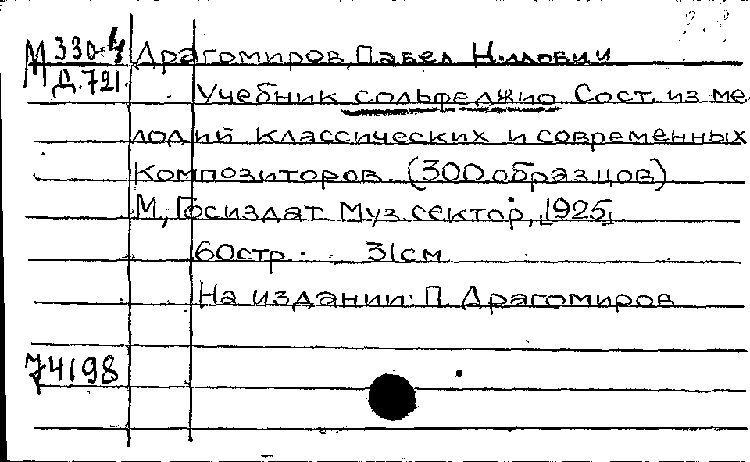 М 330-4
Д.721
Драгомиров, Павел Нилович
Учебник сольфеджио Сост. из ме
лодий классических и современных
композиторов. (300 образцов)
М, Госиздат Муз. сектор, [1925]
60 стр. 31 см
На издании: П. Драгомиров
74198